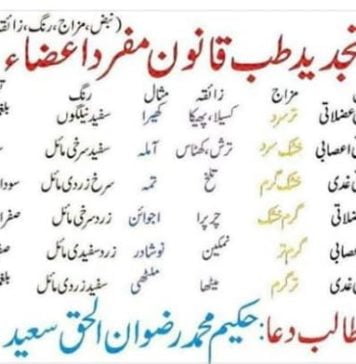 (نبض، مزاج، رنگ، زائقہ
تجدید طب قانون مفرد اعضاء
مزاج زائقہ مثال رنگ
عضلاتی تر سرد کسیلا، پھیکا کھیرا سفید نیلگوں
اعصابی خشک سرد ترش، کھٹاس آملہ سفید سرخی مائل
غدی خشک گرم تلخ تمہ سرخ زردی مائل سودا
گرم خشک چرپرا اجوائن زرد سرخی مائل صفرا
اعصابی گرم تر نمکین نوشادر زرد سفیدی مائل
غدی تر گرم میٹھا ملٹھی سفید زردی مائل
طالب دعا: حکیم محمد رضوان الحق سعید